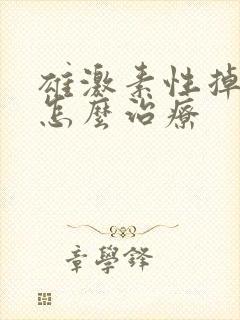 雄激素性掉
怎麼治療
章學鋒